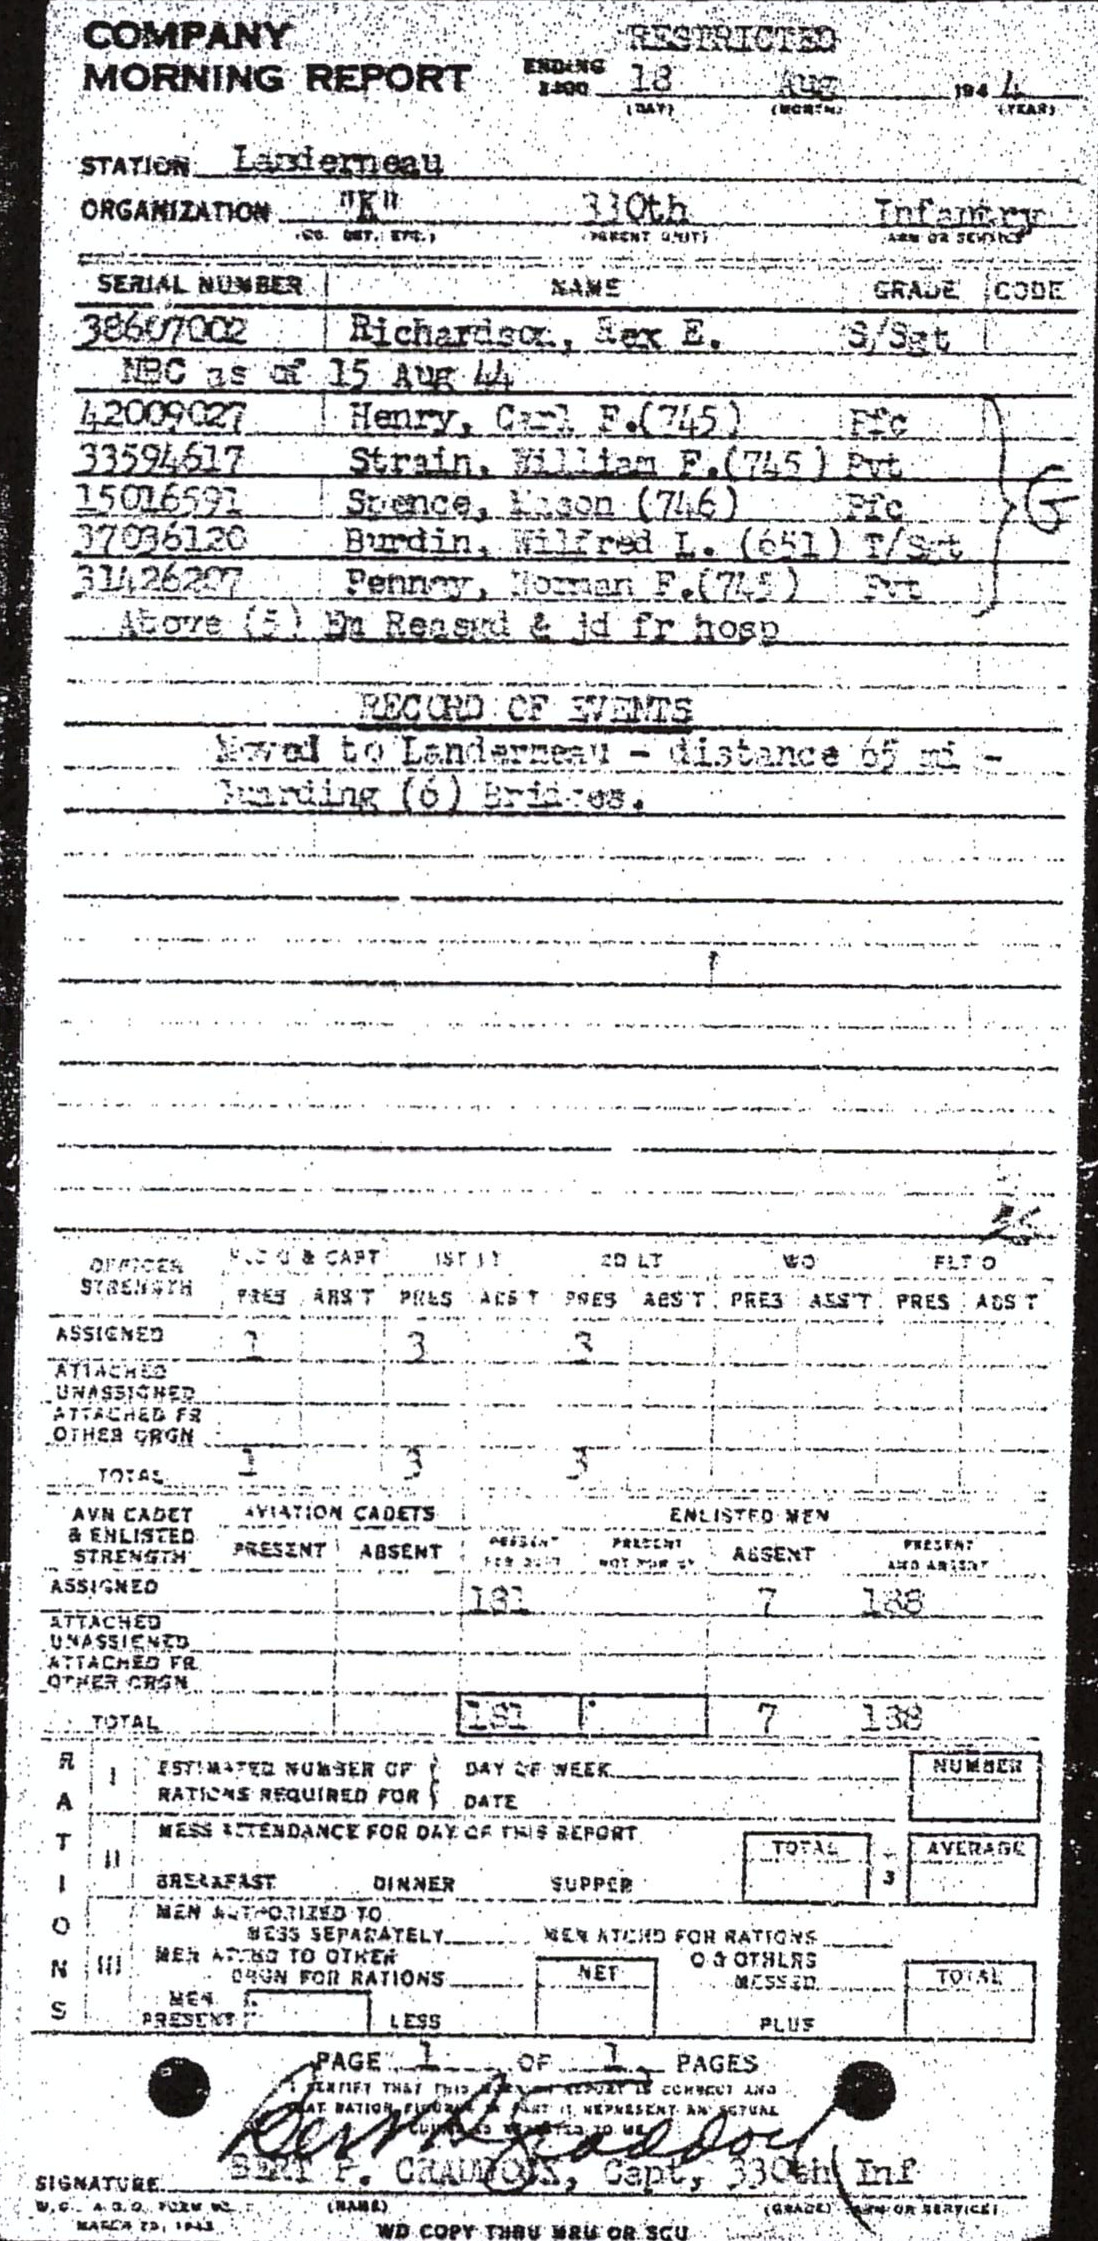 COMPANY
MORNING REPORT
RESTRICTED
ENDING 2400 18 Aug 1944
(DAY) (MONTH) (YEAR)
STATION Landerneau
ORGANIZATION "K" 330th Infantry
(CO. DET. ETC.) (PARENT UNIT) (ARM OR SERVICE)
SERIAL NUMBER NAME GRADE CODE
38607002 Richardson, Rex E. S/Sgt
NBC as of 15 Aug 44
42009027 Henry, Carl F.(745) Pfc
33594617 Strain, William F.(745) Pvt
15016591 Spence, Mason (746) Pfc
37036120 Burdin, Wilfred L. (651) T/Sgt
31426207 Penney, Norman F.(745) Pvt
G
Above (5) Em Reasgd & jd fr hosp
RECORD OF EVENTS
Moved to Landerneau - distance 65 mi -
Guarding (6) Bridges.
OFFICER STRENGTH
& CAPT 1ST LT 2D LT WO FLT O
PRES ABS'T PRES ABS'T PRES ABS'T PRES ABS'T PRES ABS'T
ASSIGNED 1 3 3
ATTACHED UNASSIGNED
ATTACHED FR OTHER ORGN
TOTAL 1 3 3
AVN CADET & ENLISTED STRENGTH
AVIATION CADETS ENLISTED MEN
PRESENT ABSENT PRESENT FOR DUTY PRESENT NOT FOR DY ABSENT PRESENT AND ABSENT
ASSIGNED 181 7 188
ATTACHED UNASSIGNED
ATTACHED FR OTHER ORGN
TOTAL 181 7 188
RATIONS
I ESTIMATED NUMBER OF RATIONS REQUIRED FOR DAY OF WEEK DATE NUMBER
II MESS ATTENDANCE FOR DAY OF THIS REPORT
BREAKFAST DINNER SUPPER TOTAL ÷ 3 AVERAGE
III MEN AUTHORIZED TO MESS SEPARATELY MEN ATCHD FOR RATIONS
MEN ATCHD TO OTHER ORGN FOR RATIONS NET O & OTHERS MESSED TOTAL
MEN PRESENT LESS PLUS
PAGE 1 OF 1 PAGES
I CERTIFY THAT THIS MORNING REPORT IS CORRECT AND
THAT RATION FIGURES IN PART II REPRESENT AN ACTUAL
COUNT AS REPORTED TO ME
SIGNATURE BERT P. CRADDOCK, Capt, 330th Inf
W.D., A.G.O. FORM NO. (NAME) (GRADE) (ARM OR SERVICE)
MARCH 25, 1943
WD COPY THRU MRU OR SCU